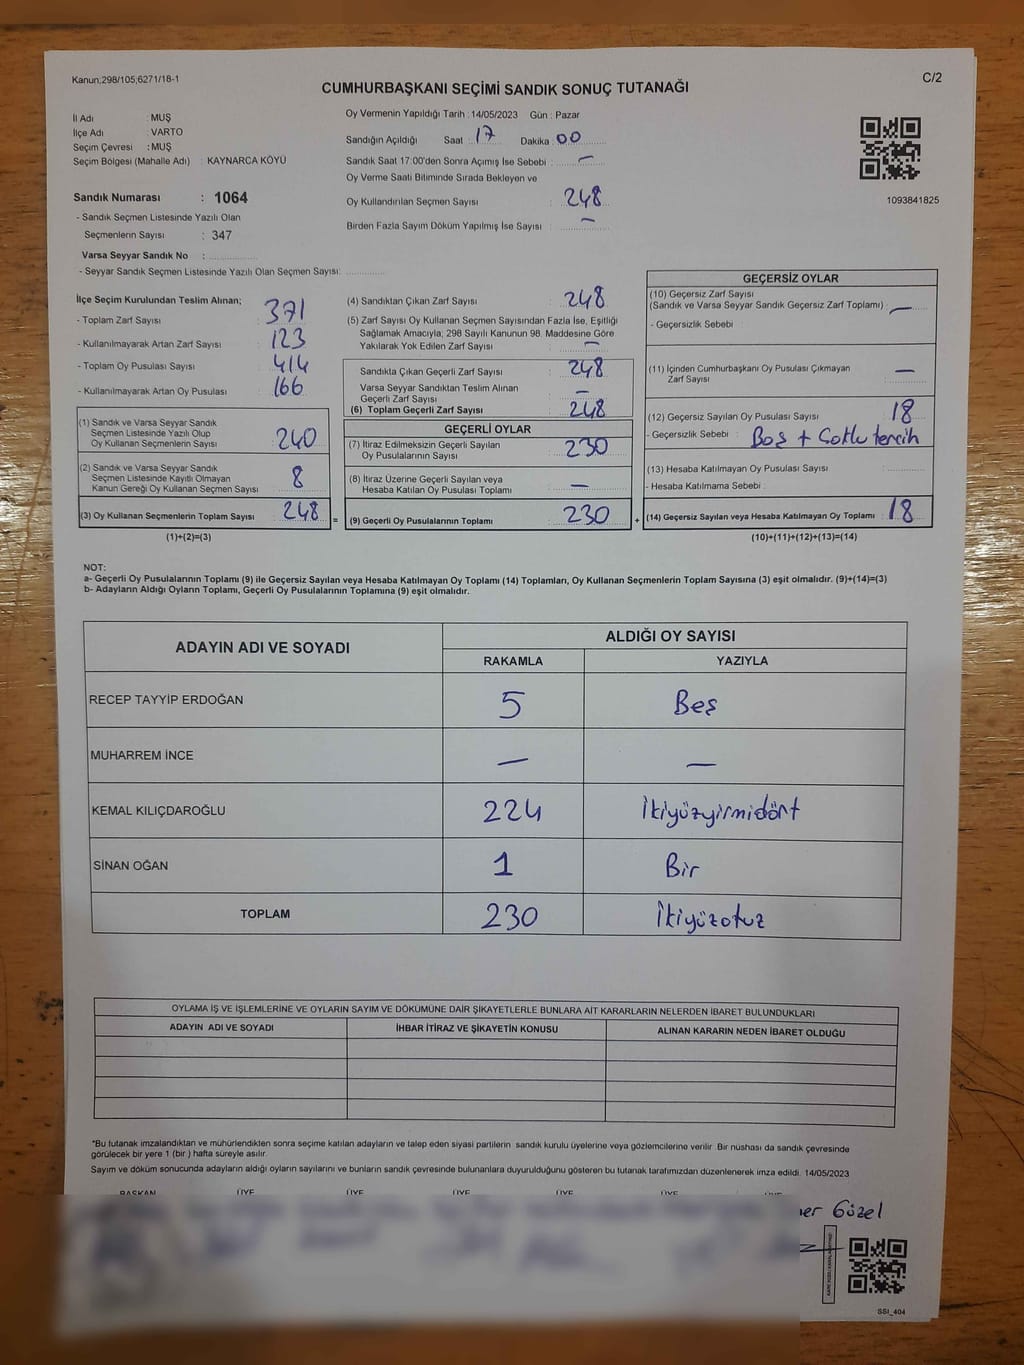 Kanun,298/105;6271/18-1
C/2
CUMHURBAŞKANI SEÇİMİ SANDIK SONUÇ TUTANAĞI
İl Adı : MUŞ
İlçe Adı : VARTO
Seçim Çevresi : MUŞ
Seçim Bölgesi (Mahalle Adı) : KAYNARCA KÖYÜ
Sandık Numarası : 1064
- Sandık Seçmen Listesinde Yazılı Olan
Seçmenlerin Sayısı : 347
Varsa Seyyar Sandık No :
- Seyyar Sandık Seçmen Listesinde Yazılı Olan Seçmen Sayısı:
Oy Vermenin Yapıldığı Tarih : 14/05/2023 Gün : Pazar
Sandığın Açıldığı Saat : 17 Dakika : 00
Sandık Saat 17:00'den Sonra Açımış İse Sebebi : —
Oy Verme Saati Bitiminde Sırada Bekleyen ve
Oy Kullandırılan Seçmen Sayısı : 248
Birden Fazla Sayım Döküm Yapılmış İse Sayısı : —
1093841825
İlçe Seçim Kurulundan Teslim Alınan;
- Toplam Zarf Sayısı : 371
- Kullanılmayarak Artan Zarf Sayısı : 123
- Toplam Oy Pusulası Sayısı : 414
- Kullanılmayarak Artan Oy Pusulası : 166
(1) Sandık ve Varsa Seyyar Sandık
Seçmen Listesinde Yazılı Olup
Oy Kullanan Seçmenlerin Sayısı : 240
(2) Sandık ve Varsa Seyyar Sandık
Seçmen Listesinde Kayıtlı Olmayan
Kanun Gereği Oy Kullanan Seçmen Sayısı : 8
(3) Oy Kullanan Seçmenlerin Toplam Sayısı : 248 =
(1)+(2)=(3)
(4) Sandıktan Çıkan Zarf Sayısı : 248
(5) Zarf Sayısı Oy Kullanan Seçmen Sayısından Fazla İse, Eşitliği
Sağlamak Amacıyla; 298 Sayılı Kanunun 98. Maddesine Göre
Yakılarak Yok Edilen Zarf Sayısı : —
Sandıkta Çıkan Geçerli Zarf Sayısı : 248
Varsa Seyyar Sandıktan Teslim Alınan
Geçerli Zarf Sayısı : —
(6) Toplam Geçerli Zarf Sayısı : 248
GEÇERLİ OYLAR
(7) İtiraz Edilmeksizin Geçerli Sayılan
Oy Pusulalarının Sayısı : 230
(8) İtiraz Üzerine Geçerli Sayılan veya
Hesaba Katılan Oy Pusulası Toplamı : —
(9) Geçerli Oy Pusulalarının Toplamı : 230 +
GEÇERSİZ OYLAR
(10) Geçersiz Zarf Sayısı
(Sandık ve Varsa Seyyar Sandık Geçersiz Zarf Toplamı) : —
- Geçersizlik Sebebi :
(11) İçinden Cumhurbaşkanı Oy Pusulası Çıkmayan
Zarf Sayısı : —
(12) Geçersiz Sayılan Oy Pusulası Sayısı : 18
- Geçersizlik Sebebi : Boş + Çoklu tercih
(13) Hesaba Katılmayan Oy Pusulası Sayısı :
- Hesaba Katılmama Sebebi :
(14) Geçersiz Sayılan veya Hesaba Katılmayan Oy Toplamı : 18
(10)+(11)+(12)+(13)=(14)
NOT:
a- Geçerli Oy Pusulalarının Toplamı (9) ile Geçersiz Sayılan veya Hesaba Katılmayan Oy Toplamı (14) Toplamları, Oy Kullanan Seçmenlerin Toplam Sayısına (3) eşit olmalıdır. (9)+(14)=(3)
b- Adayların Aldığı Oyların Toplamı, Geçerli Oy Pusulalarının Toplamına (9) eşit olmalıdır.
ADAYIN ADI VE SOYADI ALDIĞI OY SAYISI
RAKAMLA YAZIYLA
RECEP TAYYİP ERDOĞAN 5 Beş
MUHARREM İNCE — —
KEMAL KILIÇDAROĞLU 224 İkiyüzyirmidört
SİNAN OĞAN 1 Bir
TOPLAM 230 İkiyüzotuz
OYLAMA İŞ VE İŞLEMLERİNE VE OYLARIN SAYIM VE DÖKÜMÜNE DAİR ŞİKAYETLERLE BUNLARA AİT KARARLARIN NELERDEN İBARET BULUNDUKLARI
ADAYIN ADI VE SOYADI İHBAR İTİRAZ VE ŞİKAYETİN KONUSU ALINAN KARARIN NEDEN İBARET OLDUĞU
*Bu tutanak imzalandıktan ve mühürlendikten sonra seçime katılan adayların ve talep eden siyasi partilerin sandık kurulu üyelerine veya gözlemcilerine verilir. Bir nüshası da sandık çevresinde
görülecek bir yere 1 (bir ) hafta süreyle asılır.
Sayım ve döküm sonucunda adayların aldığı oyların sayılarını ve bunların sandık çevresinde bulunanlara duyurulduğunu gösteren bu tutanak tarafımızdan düzenlenerek imza edildi. 14/05/2023
BAŞKAN ÜYE ÜYE ÜYE ÜYE ÜYE
Güzel
SSI_404